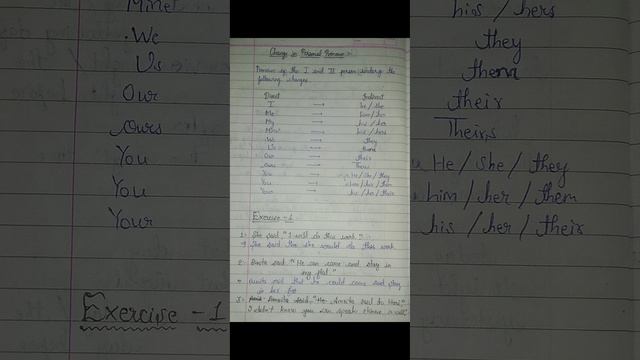 Mine
We
Us
Our
Ours
You
You
Your
Exercise - 1
Change in Personal Pronoun :-
Pronouns of the I and II person undergo the
following changes.
Direct Indirect
I → he/she
Me → him/her
My → his/her
Mine → his/hers
We → they
Us → them
Our → their
Ours → Theirs
You → He/She/they
You → him/her/them
Your → his/her/their
Exercise - 1
1- She said, "I will do this work."
→ She said that she would do this work.
2- said "He can come and stay in
my flat."
said that he could come and stay
in her
3- Amrita said, "He Amrita said to Hari,"
I didn't know you can speak chinese well"
his / hers
they
them
their
Theirs
He / She / they
him / her / them
his / her / their